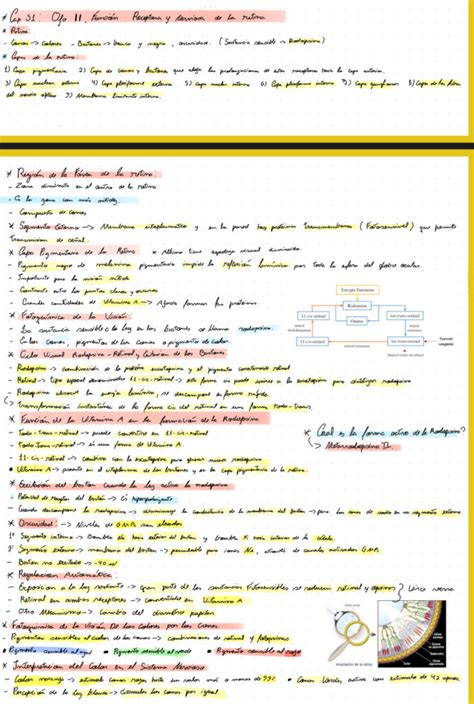 * Cap 51: Ojo II, Función Receptora y nerviosa de la retina
* Retina:
- Conos -> Colores - Bastones -> blanco y negro, oscuridad. (Sustancia sensible -> Rodopsina)
* Capas de la retina:
1) Capa pigmentaria 2) Capa de conos y bastones que aloja las prolongaciones de estos receptores hacia la capa anterior.
3) Capa nuclear externa 4) Capa plexiforme externa 5) Capa nuclear interna 6) Capa plexiforme interna 7) Capa ganglionar 8) Capa de las fibras
del nervio óptico 9) Membrana limitante interna.
* Región de la Fóvea de la retina:
- Zona diminuta en el centro de la retina
- Es la zona con más nitidez
- Compuesta de conos
* Segmento Externo -> Membrana citoplasmática y en la pared hay proteína transmembrana (Fotosensible) que permite
transmisión de señal.
* Capa Pigmentaria de la Retina * Albino tiene agudeza visual disminuida.
- Pigmento negro de melanina, pigmentaria impide la reflexión lumínica por toda la esfera del globo ocular.
- Importante para la visión nítida
- Contraste entre los puntos claros y oscuros
- Grandes cantidades de Vitamina A ->
* Fotoquímica de la Visión
- La sustancia sensible a la luz en los bastones se llama rodopsina
- En los conos, pigmentos de los conos o pigmentos de color.
* Ciclo Visual Rodopsina - Retinal y Excitación de los Bastones
- Rodopsina -> combinación de la proteína escotopsina y el pigmento carotenoide retinal
- Retinal -> tipo especial denominado 11-cis-retinal -> esta forma cis puede unirse a la escotopsina para sintetizar rodopsina
- Rodopsina absorbe la energía lumínica, se descompone en forma rápida.
-> Transformación instantánea de la forma cis del retinal en una forma todo-trans.
* Función de la Vitamina A en la formación de la Rodopsina
- Todo-trans-retinal -> puede convertirse en 11-cis-retinal
- Todo-trans-retinol -> es una forma de Vitamina A
- 11-cis-retinal -> combina con la escotopsina para generar nueva rodopsina
• Vitamina A -> presente en el citoplasma de los bastones y en la capa pigmentaria de la retina.
Energía luminosa
Rodopsina
11-cis-retinal
Opsina
todo-trans-retinal
11-cis-retinol
todo-trans-retinol
* Cual es la forma activa de la Rodopsina?
-> Metarrodopsina II.
* Excitación del bastón cuando la luz activa la rodopsina
- Potencial de receptor del bastón -> Es hiperpolarizante
- Cuando descompone la rodopsina -> disminuye la conductancia de la membrana del bastón -> para los iones de sodio en su segmento externo
* Oscuridad: -> Niveles de GMPc son elevados
1° Segmento interno -> Bombea Na hacia exterior del bastón y bombea K hacia interior de la célula.
2° Segmento externo -> membrana del bastón -> permeable para iones Na, através de canales activados GMPc
- Bastón no excitado -> -40 mV
* Regulación Automática:
- Exposición a la luz radiante -> gran parte de las sustancias fotosensibles se reducen retinal y opsinas
- Retinal en ambos receptores -> convertirlas en Vitamina A
- Otro Mecanismo -> Cambio del diámetro pupilar
* Fotoquímica de la Visión De los colores por los Conos
- Pigmentos sensibles al color de los conos -> combinaciones de retinal y fotopsinas
• Pigmento sensible al azul • Pigmento sensible al verde • Pigmento sensible al rojo
* Interpretación del Color en el Sistema Nervioso
- Color naranja -> estimula conos rojos hasta un valor más o menos de 99% • Conos Verdes, activa con estimulo de 42 aprox
- Percepción de la luz blanca -> Estimular los conos por igual
Adaptación de la retina